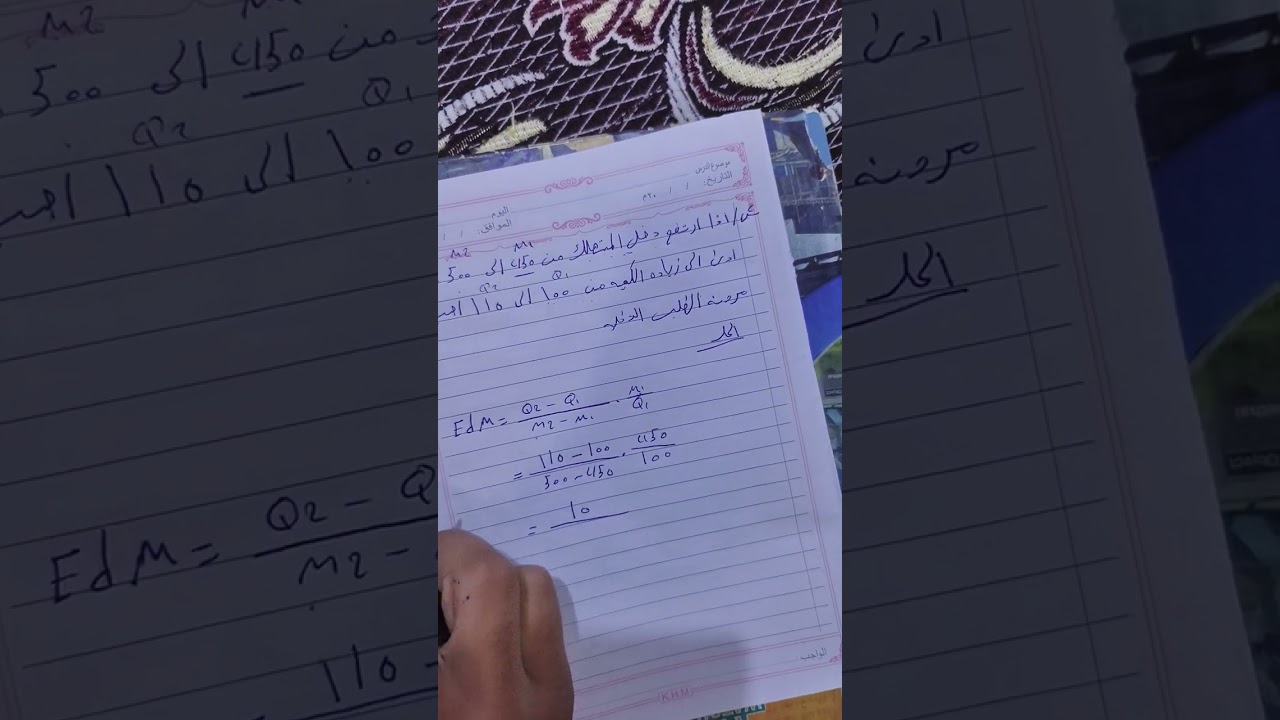 موضوع الدرس
التاريخ: / / ٢٠م
اليوم
الموافق: / /
س/ اذا ارتفع دخل المستهلك من 450 الى 500
M1 M2
ادى الى زياده الكميه من 100 الى 110 احسب
Q1 Q2
مرونه الطلب الدخليه
الحل
EdM = Q2 - Q1 / M2 - M1 . M1 / Q1
= 110 - 100 / 500 - 450 . 450 / 100
= 10
الواجب
KHM